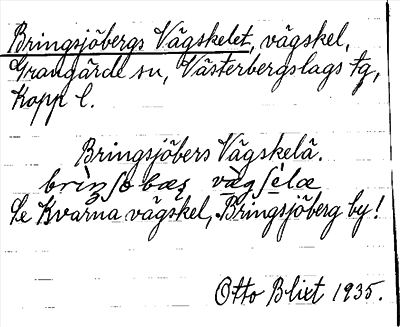 Bringsjöbergs Vägskelet, vägskel,
Grangärde sn, Västerbergslags tg,
Kopp l.
Bringsjöbers Vägskelä.
Se Kvarna vägskel, Bringsjöberg by!
Otto Blixt 1935.